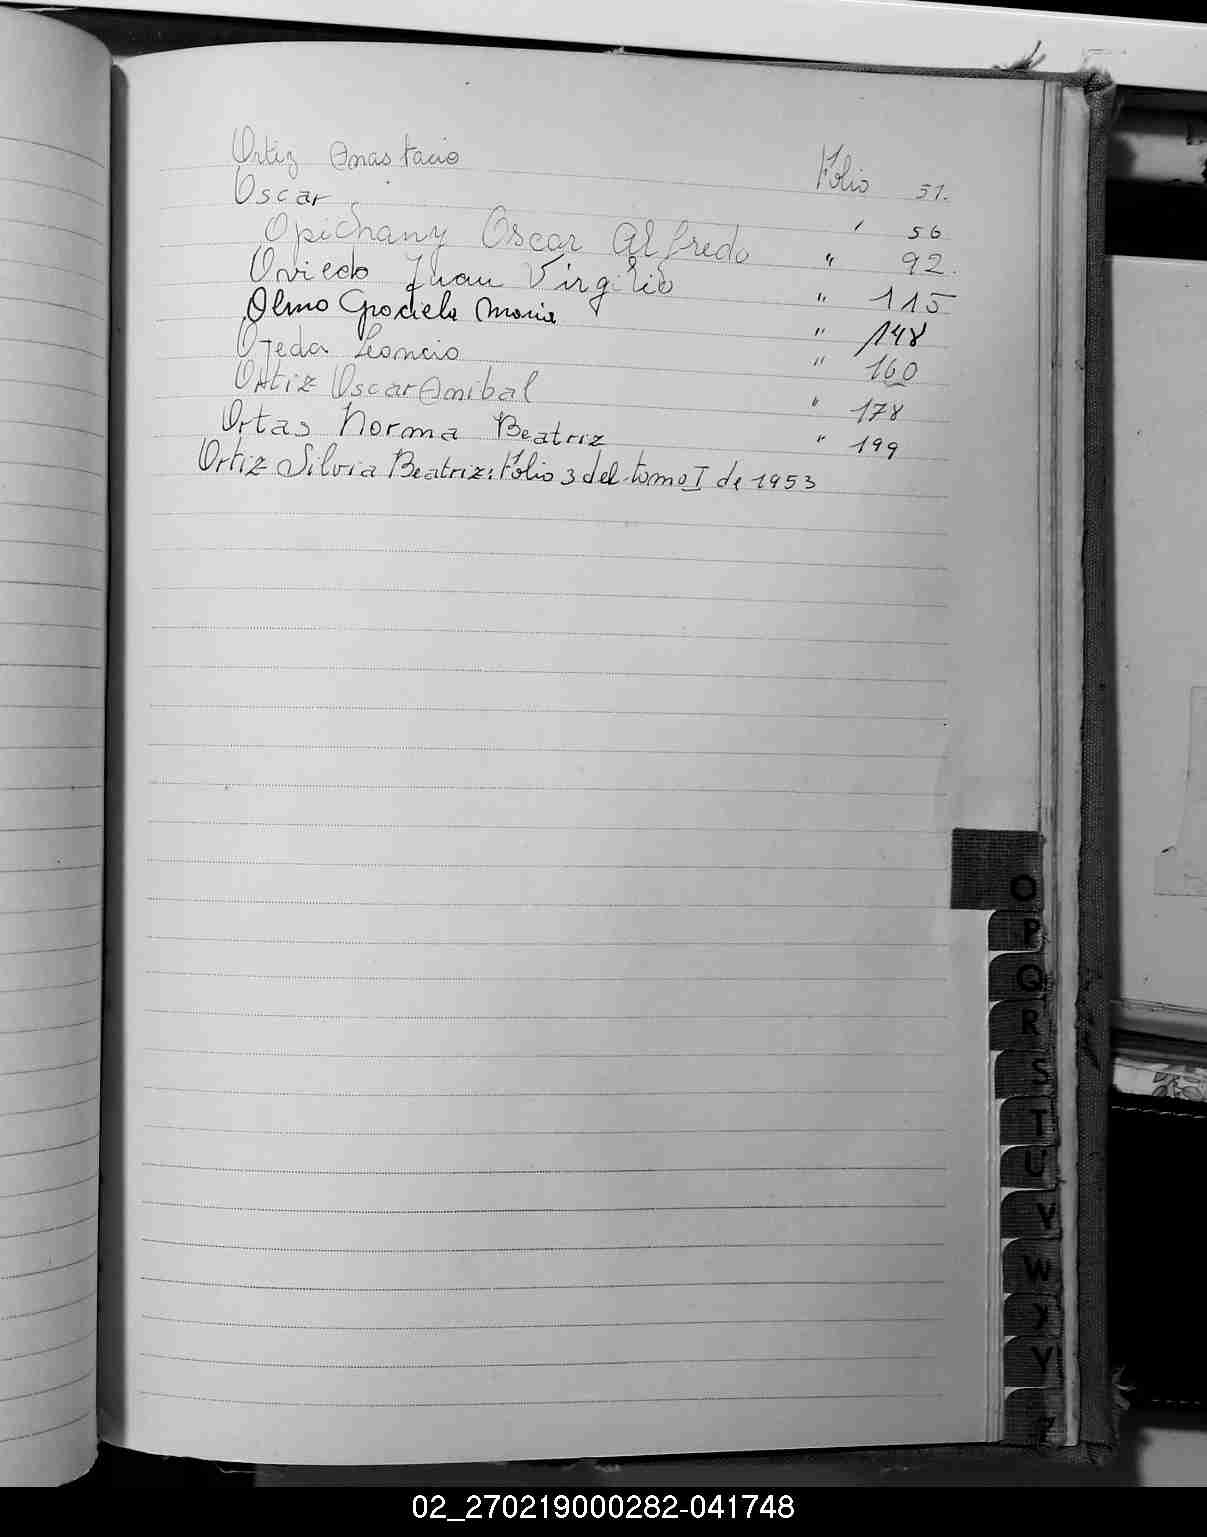 Ortiz Anastacio Folio 51.
Oscar ' 56
Opichany Oscar Alfredo " 92.
Oviedo Juan Virgilio " 115
Olmo Graciela Maria " 148
Ojeda Leoncio " 160
Ortiz Oscar Anibal " 178
Ortas Norma Beatriz " 199
Ortiz Silvia Beatriz: Folio 3 del tomo I de 1953
O
P
Q
R
S
T
U
V
W
Y
02_270219000282-041748